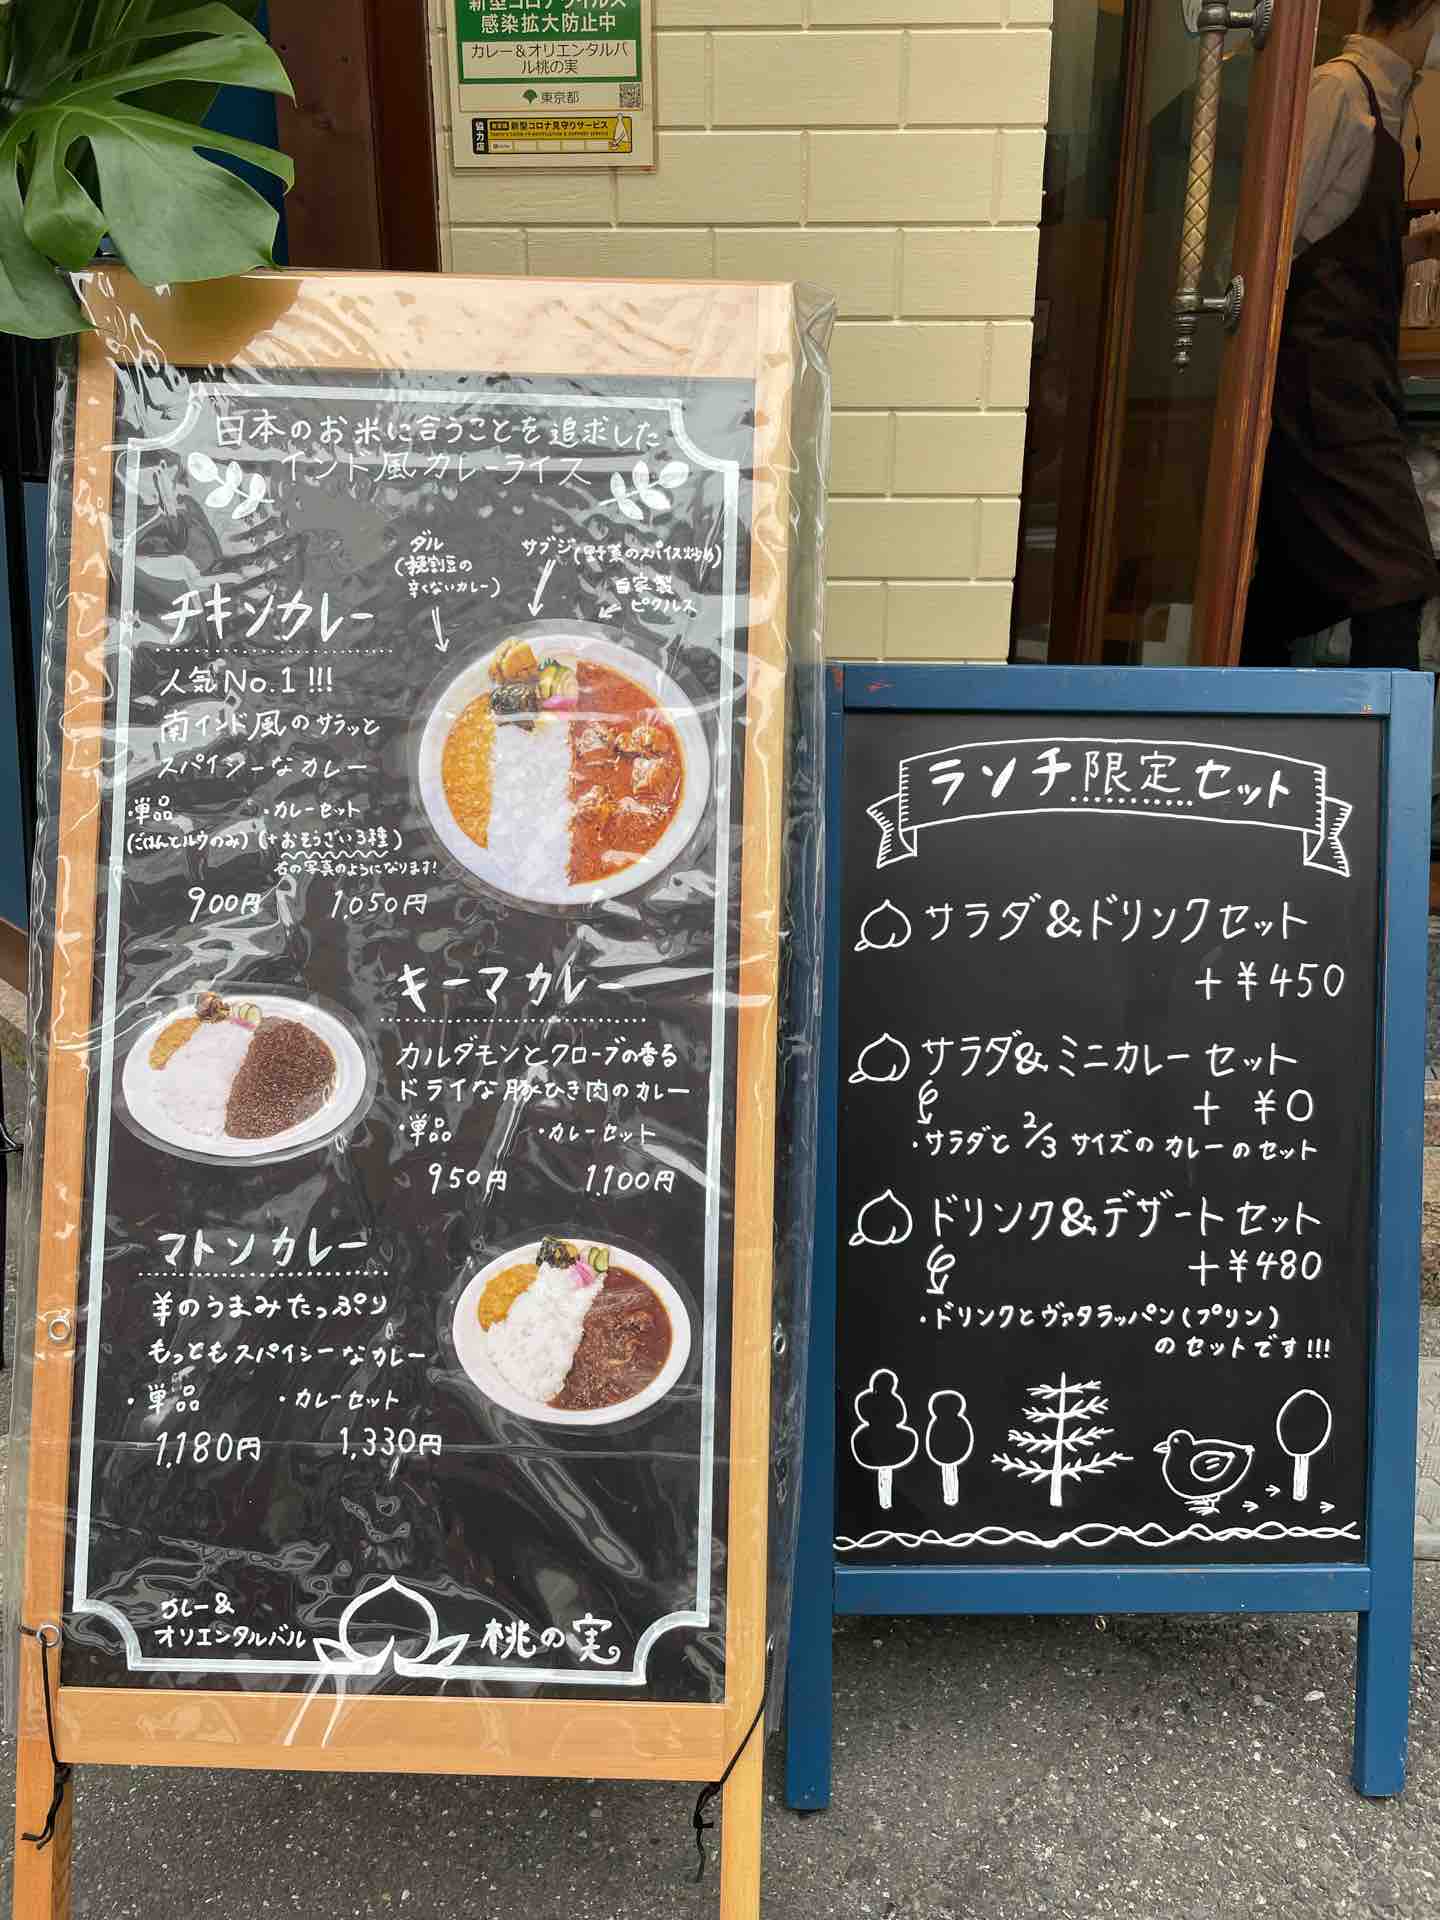 新型コロナウイルス
感染拡大防止中
カレー＆オリエンタルバ
ル桃の実
東京都
協力店
新型コロナ見守りサービス
日本のお米に合うことを追求した
インド風カレーライス
ダル
(挽割豆の
辛くないカレー)
サブジ(野菜のスパイス炒め)
自家製
ピクルス
チキンカレー
人気No.1!!!
南インド風のサラッと
スパイシーなカレー
・単品
(ごはんとルウのみ)
900円
・カレーセット
(+おそうざい3種)
右の写真のようになります!
1,050円
キーマカレー
カルダモンとクローブの香る
ドライな豚ひき肉のカレー
・単品 ・カレーセット
950円 1,100円
マトンカレー
羊のうまみたっぷり
もっともスパイシーなカレー
・単品 ・カレーセット
1,180円 1,330円
カレー&
オリエンタルバル
桃の実
ランチ限定セット
サラダ&ドリンクセット
+¥450
サラダ&ミニカレーセット
+ ¥0
・サラダと2/3サイズのカレーのセット
ドリンク&デザートセット
+¥480
・ドリンクとヴァタラッパン(プリン)
のセットです!!!